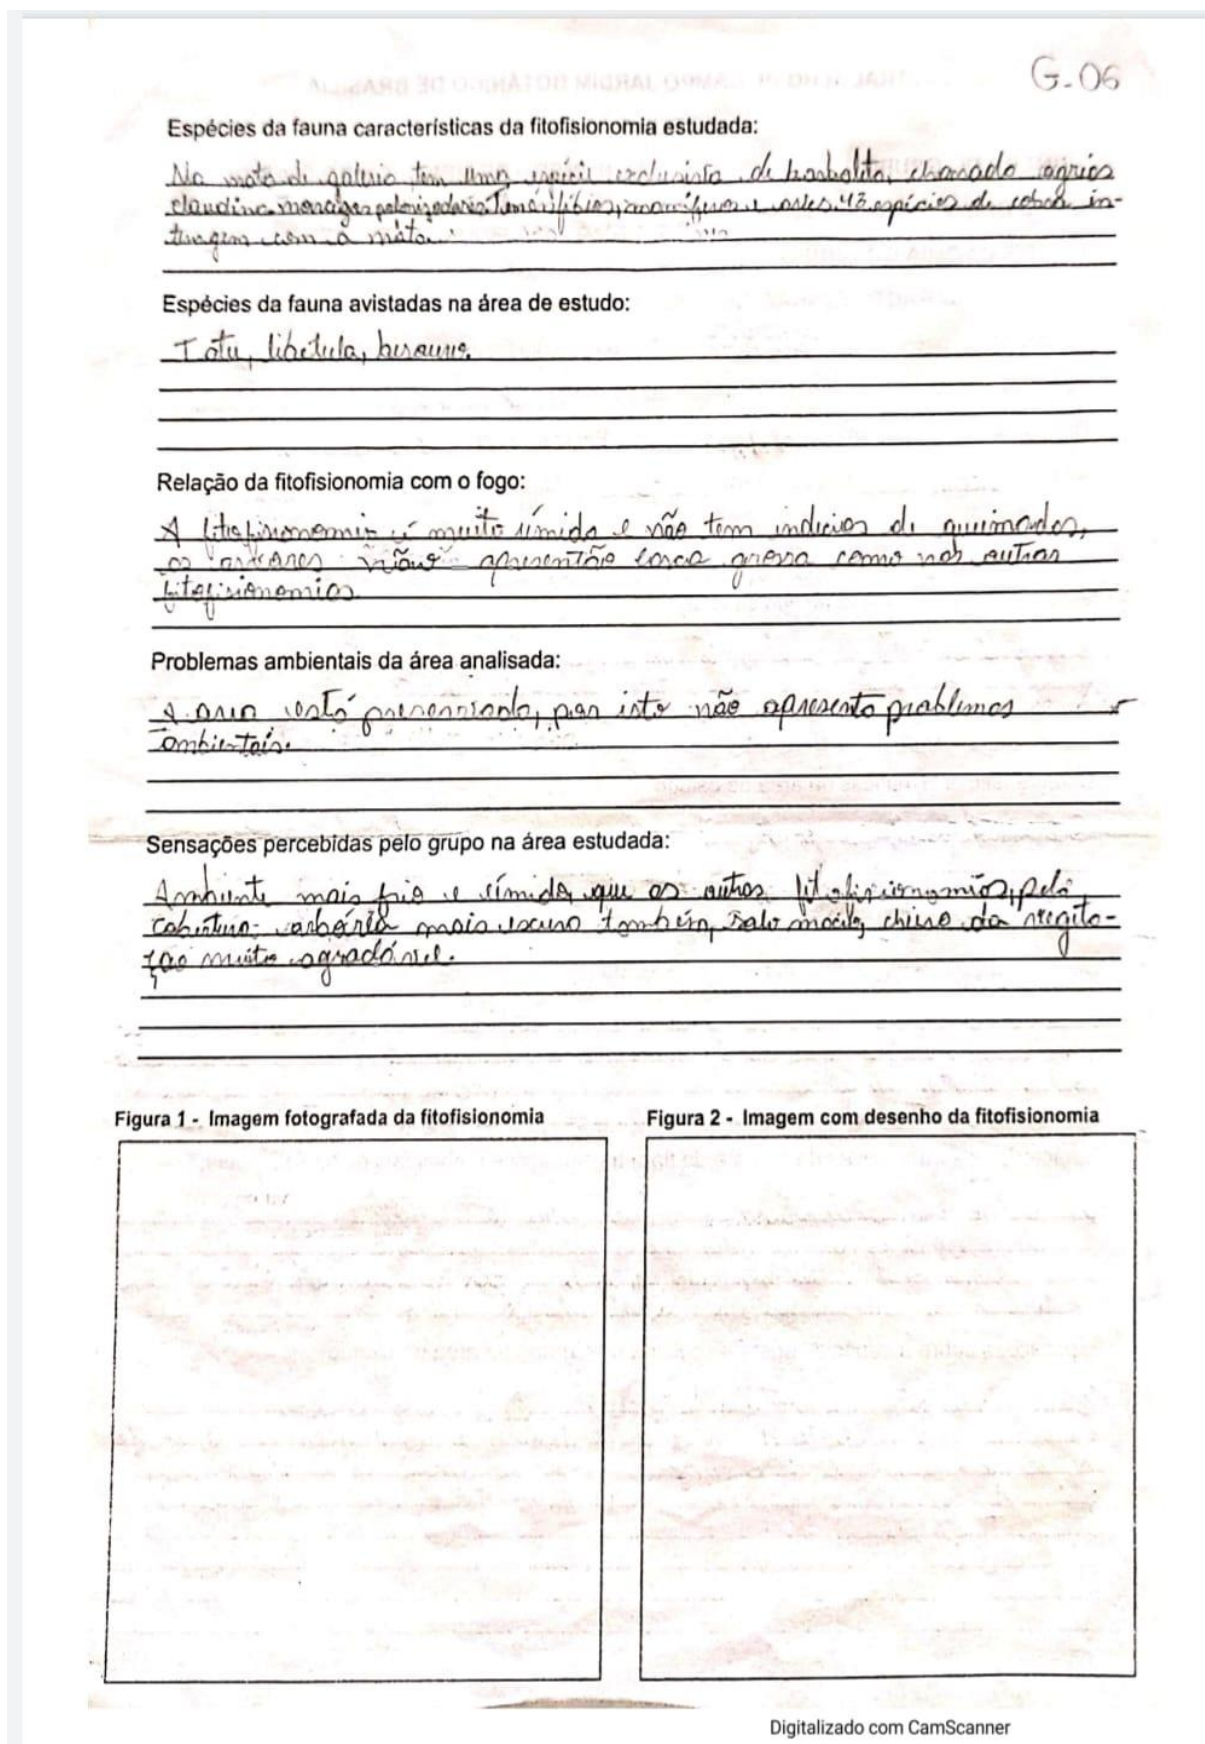 G-06
Espécies da fauna características da fitofisionomia estudada:
Na mata de galeria tem uma espécie exclusista de borboleta, chamada agrias
claudina, morcegos polonizadores. Tem anfíbios, mamíferos e aves. 43 espécies de cobra in-
teragem com a mata.
Espécies da fauna avistadas na área de estudo:
Tatu, libelula, besouro.
Relação da fitofisionomia com o fogo:
A fitofisionomia é muito úmida e não tem indícios de queimadas,
as árvores não apresentão casca grossa como nas outras
fitofisionomias
Problemas ambientais da área analisada:
A area está preservada, por isto não apresenta problemas
ambientais.
Sensações percebidas pelo grupo na área estudada:
Ambiente mais frio e úmido que as outras fitofisionomias, pela
cobertura arbórea mais escuro também, solo macio, cheiro da vegeta-
ção muito agradável.
Figura 1 - Imagem fotografada da fitofisionomia
Figura 2 - Imagem com desenho da fitofisionomia
Digitalizado com CamScanner